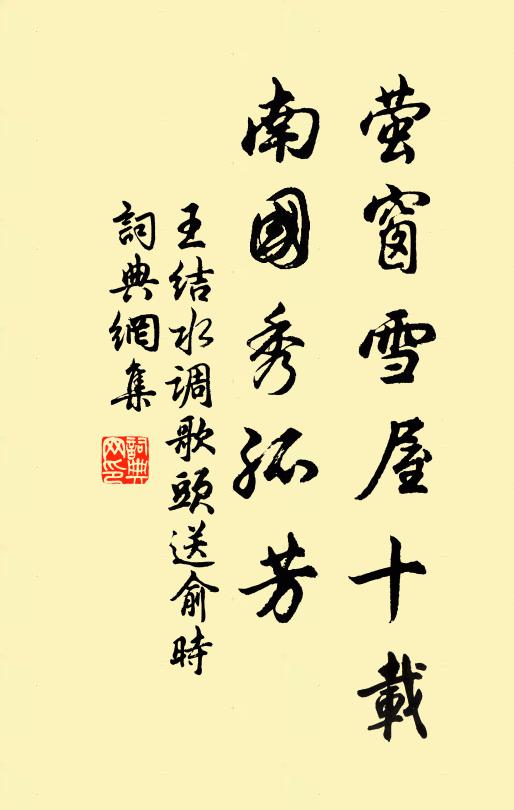 萤窗雪屋十載
南國秀孤芳
王结水调歌頭送俞時
詞典網集
詞典
网印